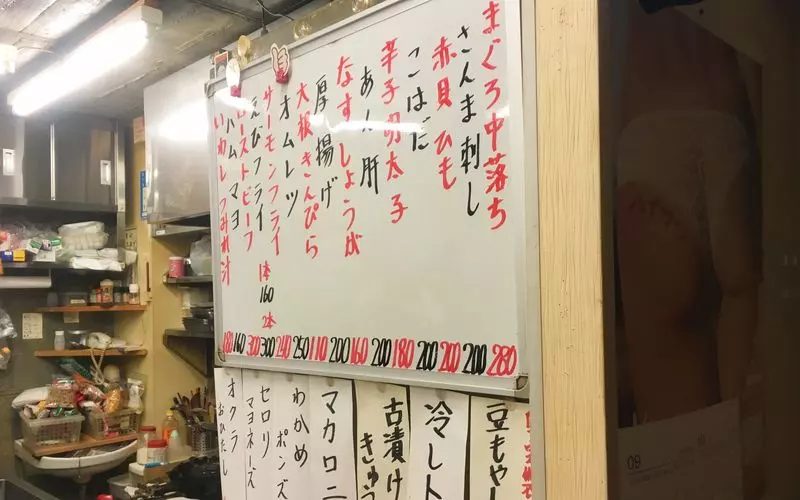 まぐろ中落ち 280
さんま刺し 200
赤貝ひも 200
こはだ 200
辛子明太子 180
あん肝 200
なすしょうが 160
厚揚げ 200
大根きんぴら 110
オムレツ 250
サーモンフライ 240
えびフライ 1本 160 2本 300
ローストビーフ 300
ハムマヨ 160
いわしつみれ汁 180
豆もやし
冷しト
古漬け
きゅう
マカロニ
わかめ
ポンズ
セロリ
マヨネーズ
オクラ
おひたし
09